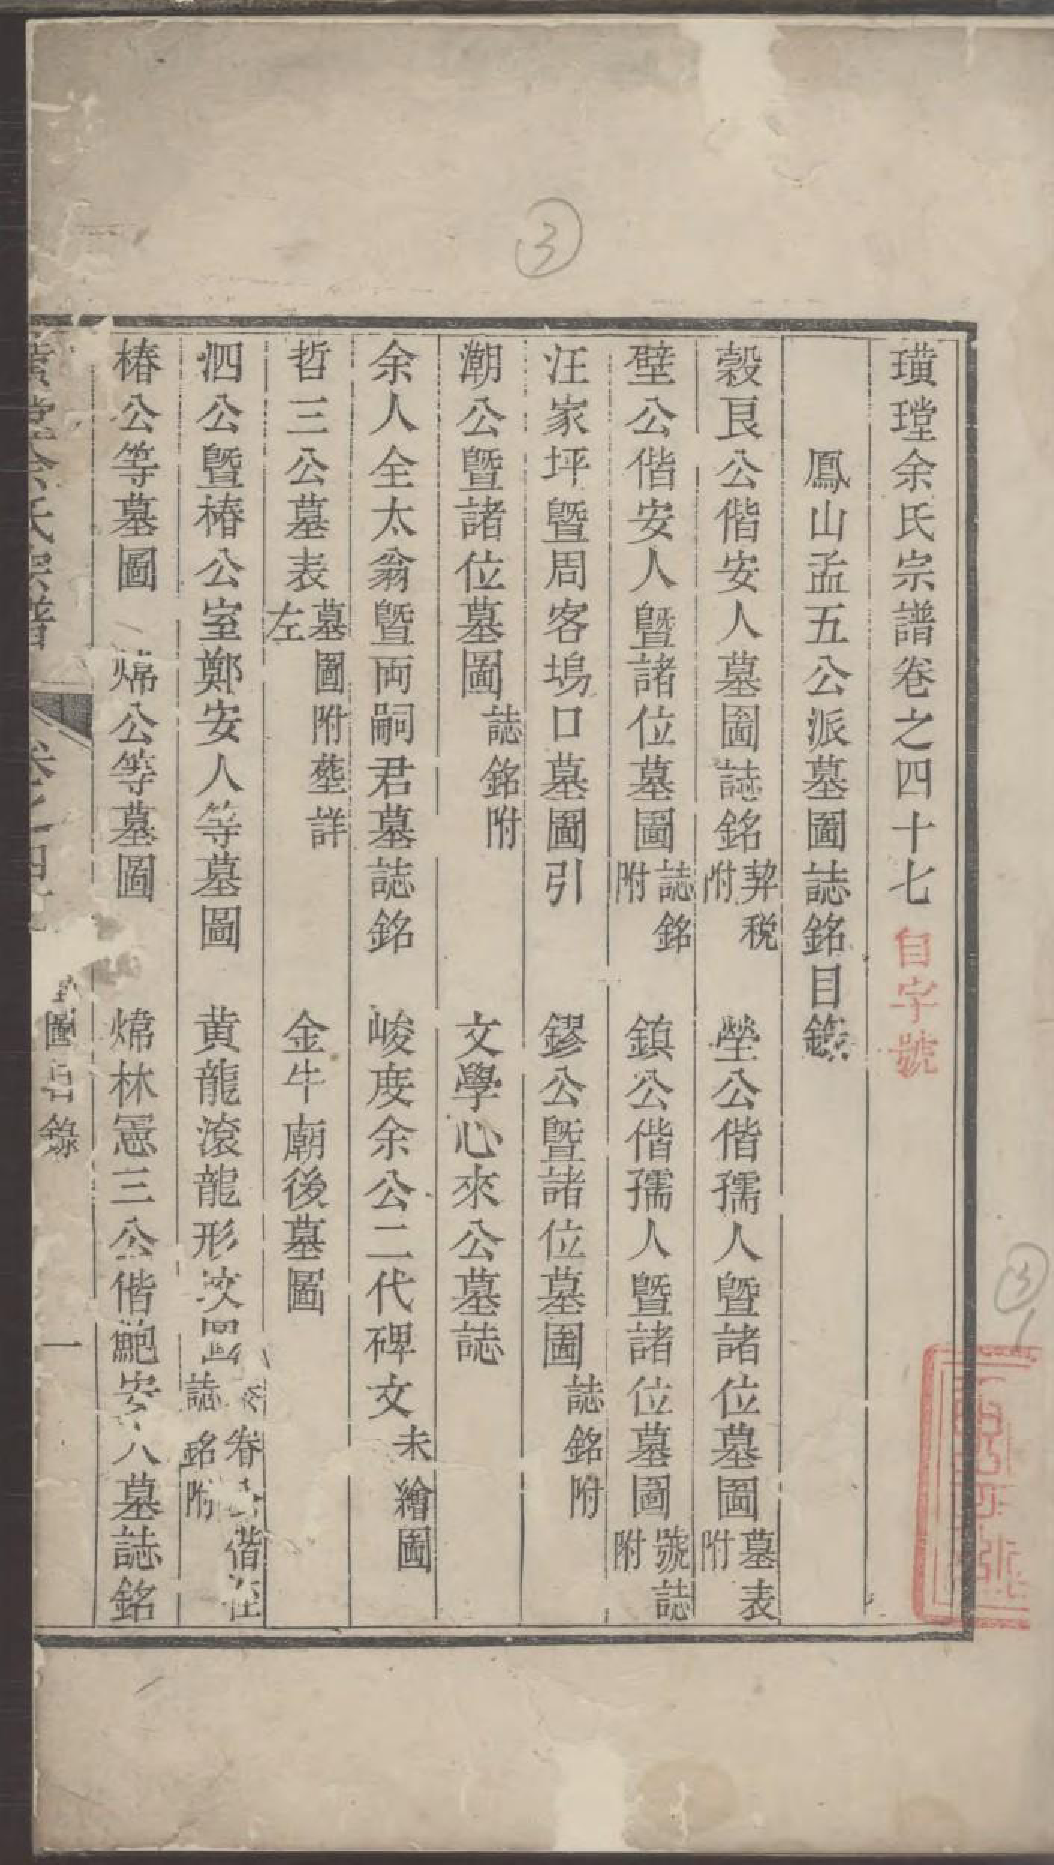 璜瑝余氏宗譜卷之四十七 自字號
鳳山孟五公派墓圖誌銘目錄
榖良公偕安人墓圖誌銘 契税附 塋公偕孺人暨諸位墓圖 墓表附
壁公偕安人暨諸位墓圖 誌銘附 鎮公偕孺人暨諸位墓圖 號誌附
汪家坪暨周客塢口墓圖引 鏐公暨諸位墓圖 誌銘附
潮公暨諸位墓圖 誌銘附 文學心來公墓誌
余人全太翁暨両嗣君墓誌銘 峻度余公二代碑文 未繪圖
哲三公墓表 墓圖附塟詳左 金牛廟後墓圖
泗公暨椿公室鄭安人等墓圖 黄龍滾龍形墳圖 卷公偕侄誌銘附
椿公等墓圖 煒公等墓圖 煒林憲三公偕鮑安人墓誌銘
余氏宗譜 卷之四 圖目錄 一
③
③